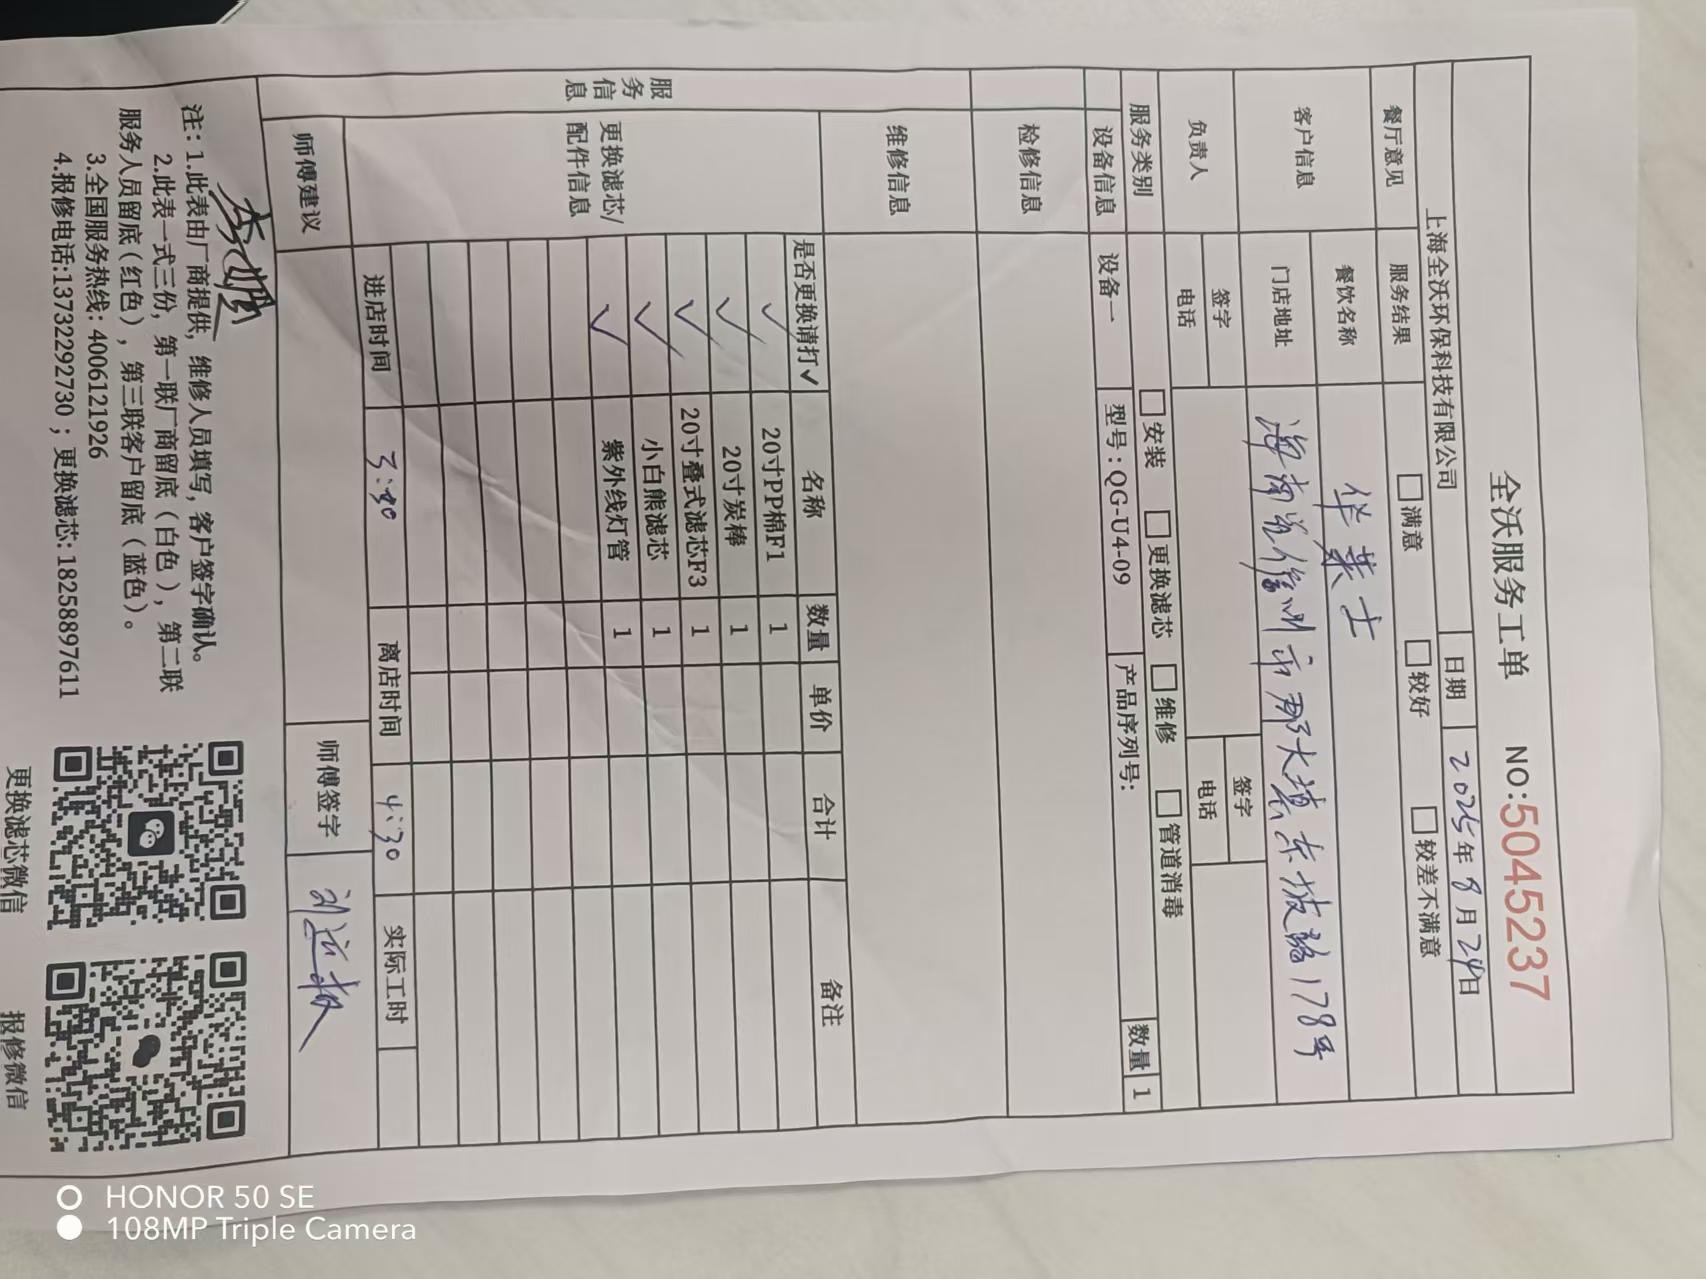 全沃服务工单 NO:5045237
上海全沃环保科技有限公司 日期 2025年8月24日
餐厅意见 服务结果 □满意 □较好 □较差不满意
客户信息 餐饮名称 华莱士
门店地址 海南省儋州市那大镇东坡路178号
负责人 签字 签字
电话 电话
服务类别 □安装 □更换滤芯 □维修 □管道消毒
设备信息 设备一 型号:QG-U4-09 产品序列号: 数量 1
检修信息
维修信息
服务信息
更换滤芯/配件信息
是否更换请打✓ 名称 数量 单价 合计 备注
✓ 20寸PP棉F1 1
✓ 20寸炭棒 1
✓ 20寸叠式滤芯F3 1
✓ 小白熊滤芯 1
✓ 紫外线灯管 1
进店时间 3:30 离店时间 4:30 实际工时
师傅建议 师傅签字
注: 1.此表由厂商提供, 维修人员填写, 客户签字确认。
2.此表一式三份, 第一联厂商留底(白色), 第二联
服务人员留底(红色), 第三联客户留底(蓝色)。
3.全国服务热线: 4006121926
4.报修电话:13732292730; 更换滤芯: 18258897611
更换滤芯微信 报修微信
HONOR 50 SE
108MP Triple Camera